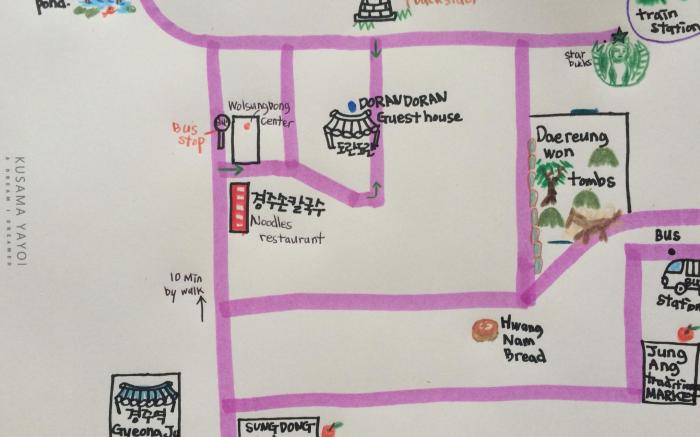 pond.
backside
train
station
star
bucks
Wolsungdong
center
BUS
Bus
stop
DORANDORAN
Guest house
도란도란
Daereung
won
tombs
경주손칼국수
Noodles
restaurant
KUSAMA YAYOI
A DREAM I DREAMED
10 Min
by walk
BUS
BUS
Station
Hwang
Nam
Bread
Jung
Ang
traditional
MARKET
경주역
GyeongJu
SUNGDONG